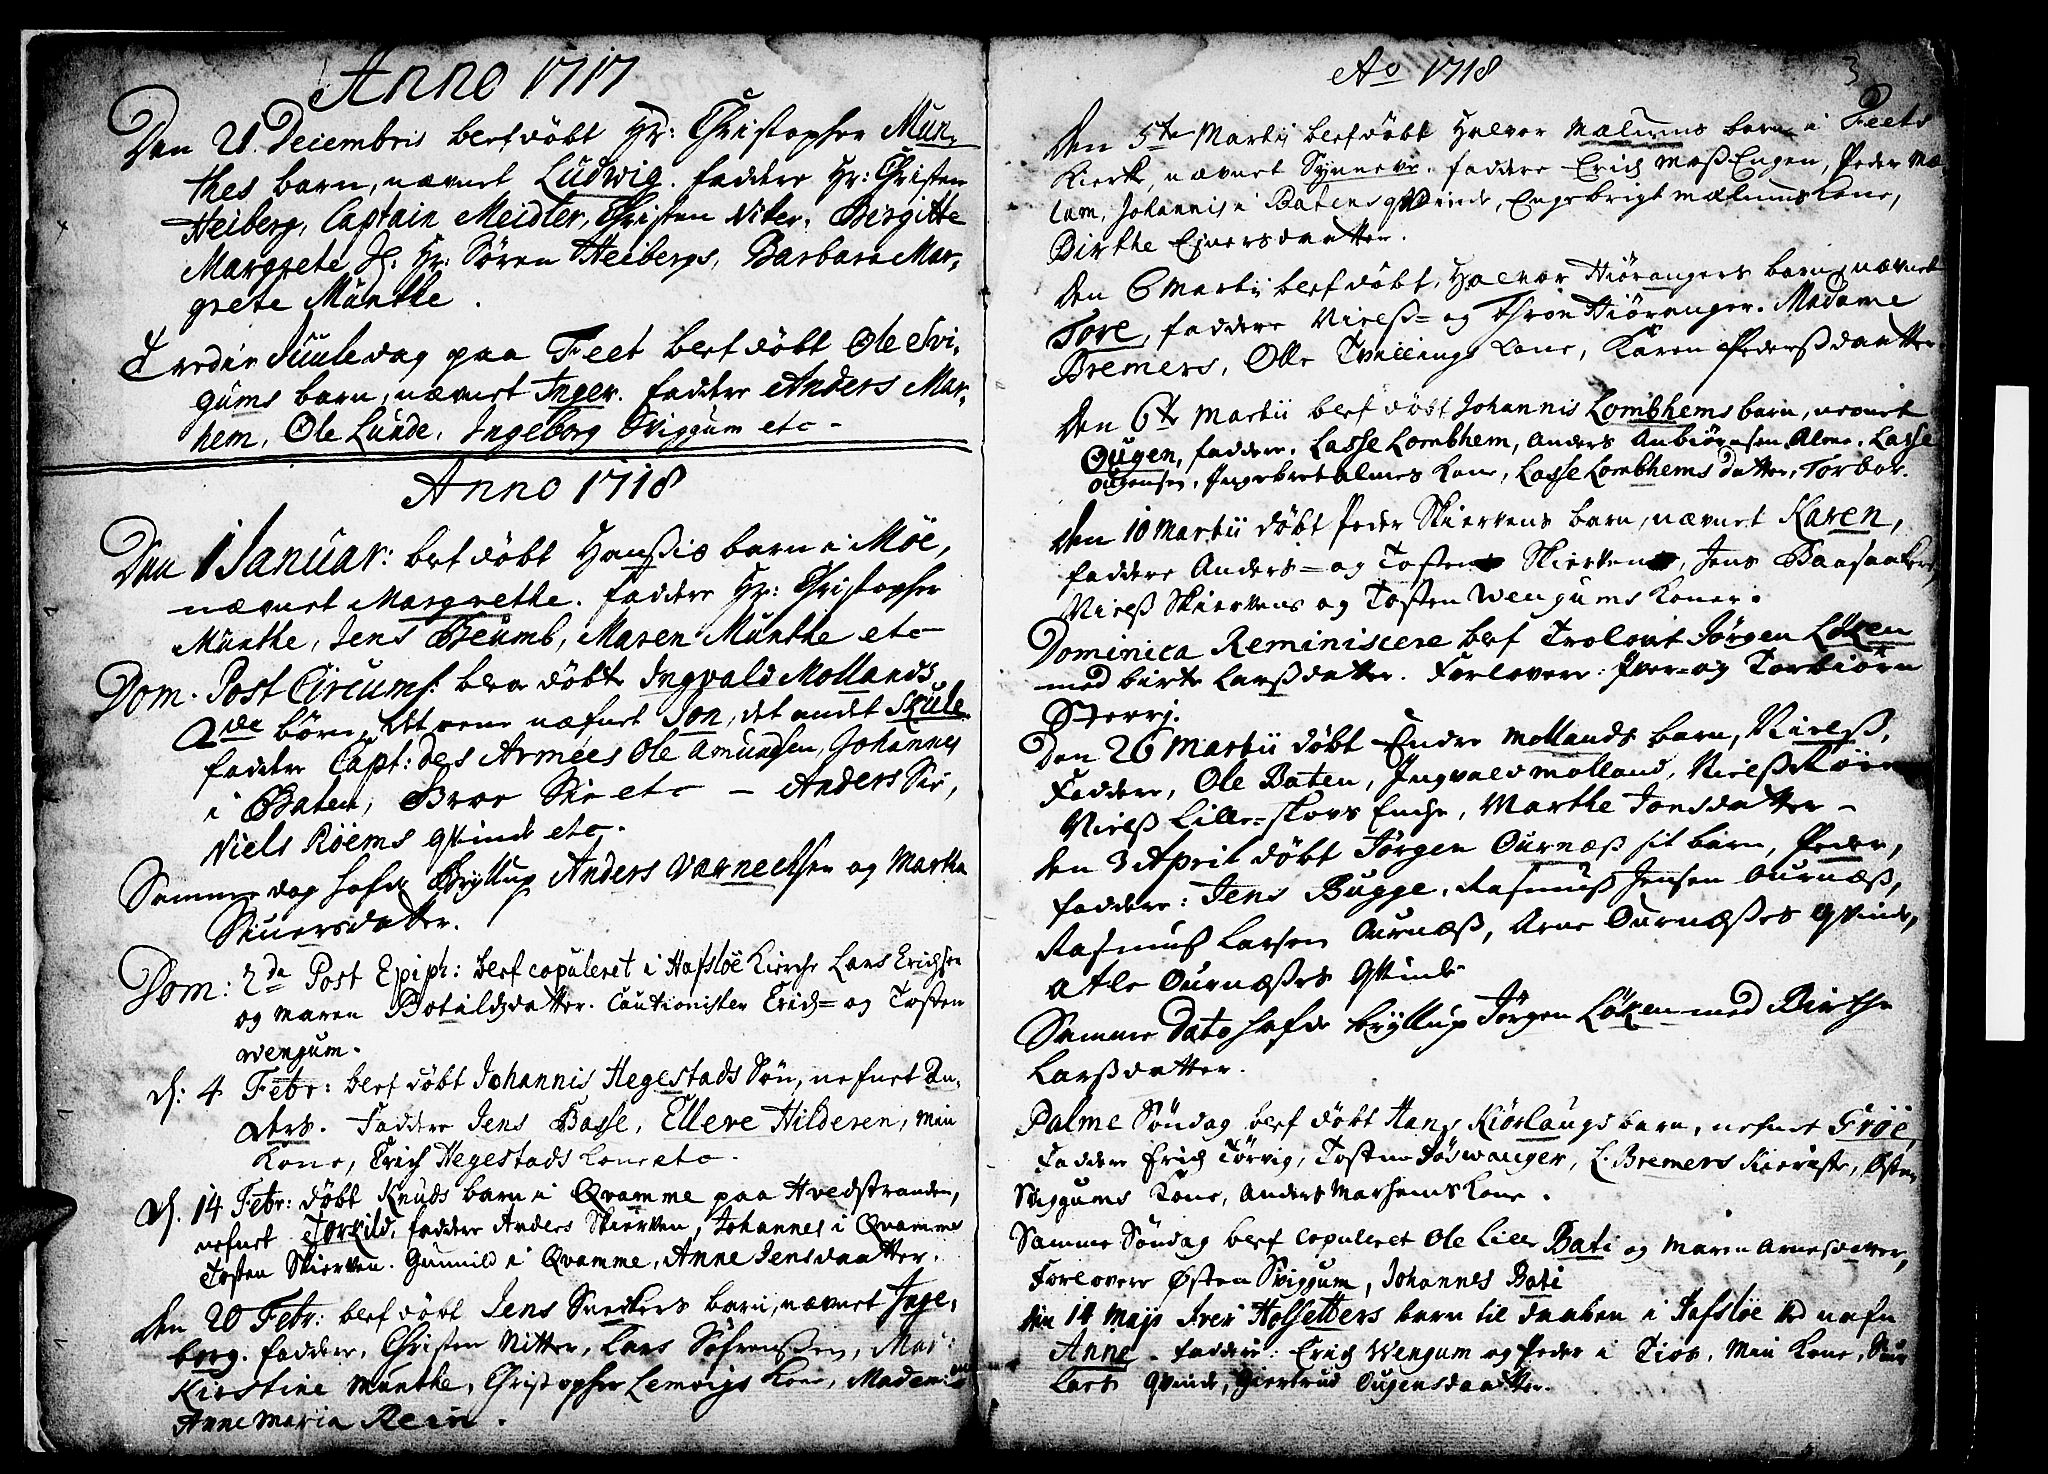 Anno 1717
Den 21 Decembris blef döbt Hr: Christopher Mun-
thes barn, nævnet Ludwig. faddere Hr: Christen
Heiberg, Captain Meidler, Christen Niter, Birgitte
Margrete Hr: Sören Heibergs, Barbara Mar-
grete Münthe.
Tredie Juuledag paa Feet blef döbt Ole Svi-
gums barn, nævnet Inger. faddere Anders Mar-
hem, Ole Lunde, Ingeborg Sviggum etc -
Anno 1718
Den 1 Januar: blef döbt barn i Möe,
nævnet Margrethe. faddere Hr: Christopher
Münthe, Jens Beumb, Maren Munthe etc
Dom. Post Circums: blev döbte Ingvald Mollands
2de börn, det eene næfnet Jon, det andet Skule
faddere Capt: des Armées Ole Amundsen, Johannes
i Baten, Brox etc - Anders
Niels Röems qvinde etc.
Samme dag hafde Bryllup Anders Varnechsen og Martha
Siuersdatter.
Dom: 2da Post Epiph: blef copuleret i Hafslöe Kierche Lars Erichsen
og Maren Botalds datter. Cautionister Erich= og Tosten
Wengum.
d: 4 Febr: blef döbt Johannis Hegestads Sön, nefnet An-
ders. Faddere Jens Basse, Ellere Hilderen, Min
Kone, Erich Hegestads Kone etc -
d. 14 Febr: döbt Knuds barn i Qvamme paa Hvedstranden,
nefnet Torkild, faddere Anders Skierven, Johannes i Qvamme
Tosten Skierven. Gunnild i Qvamme, Anne Jensdaatter.
Den 20 Febr: blef döbt Jens Snedkers barn, nævnet Inge-
borg. faddere, Christen Nitter, Lars Söfrenssen, Mar:
Kirstine Munthe, Christopher Lemvigs Kone, Madame
Anne Maria Rein.
Ao 1718 3
Den 5te Martij blef döbt Halvor Mælums barn i Feets
Kierke, nævnet Synneve. faddere Erich MossEngen, Peder Mæ-
lum, Johannis i Batens qvinde, Engebrigt Mælums Kone,
Birthe Ejnersdaatter.
Den 6 Martij blef döbt, Halvor Hiörangers barn, nævnet
Tore, faddere Nielss= og Thron Hiöranger. Madame
Bremers, Olle Tvillings Kone, Karen Pederssdaatter
Den 6te Martii blef döbt Johannis Lombhems barn, nevnet
Ougen, faddere. Lasse Lombhem, Anders Anbiörnsen Alme, Lasse
Ougensen, Ingebret Almes Kone, Lasse Lombhems datter, Torbor.
Den 10 Martii döbt Peder Skiervens barn, nævnet Karen,
faddere Anders= og Tosten Skierven, Jens
Nielss Skiervens og Tosten Wengums Koner.
Dominica Reminiscere blef Trolovit Jörgen Löken
med Birte Larssdatter. Forlovere: Iver= og Torbiörn
Sterri.
Den 26 Martii döbt Endre Mollands barn, Nielss,
Faddere, Ole Baten, Ingvald Molland, Nielss Röim
Nielss Lille-skovs Enche, Marthe Jonsdatter -
Den 3 April döbt Jörgen Ournæss sit barn, Peder,
faddere: Jens Bugge, Rasmuss Jensen Ournæss,
Rasmuss Larsen Ournæss, Arne Ournæsses Qvinde,
Atle Ournæsses Qvinde
Samme Dato hafde bryllup Jörgen Löken med Birthe
Larssdatter.
Palme Söndag blef döbt Hans Kiörlaugs barn, nefnet Fröe,
Faddere Erich Törvig, Tosten Jöswanger, L. Bremers Kieriste, Östen
Sviggums Kone, Anders Marhems Kone.
Samme Söndag blef Copuleret Ole Lille Bati og Maren Arnesdatter,
Forlovere Østen Sviggum, Johannes Bati
Den 14 Maji Iver Holsetters barn til daaben i Hafslöe ved nafn
Anne. faddere: Erich Wengum og Peder i Tiør, Min Kone,
Lars Qvinde, Giertrud Ougensdaatter.